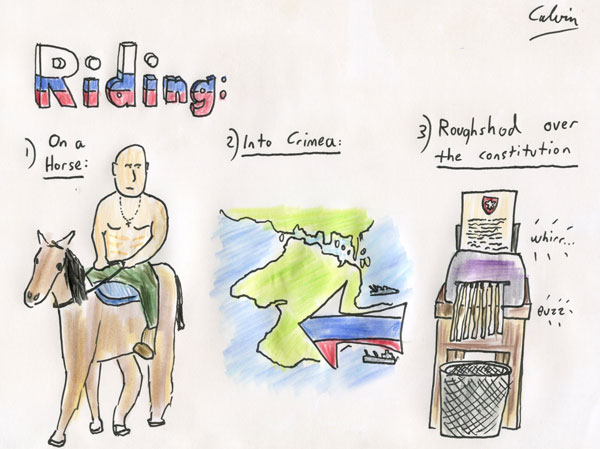 Calvin
Riding:
1) On a
Horse:
2) Into Crimea:
3) Roughshod over
the constitution
whirr...
BUZZ